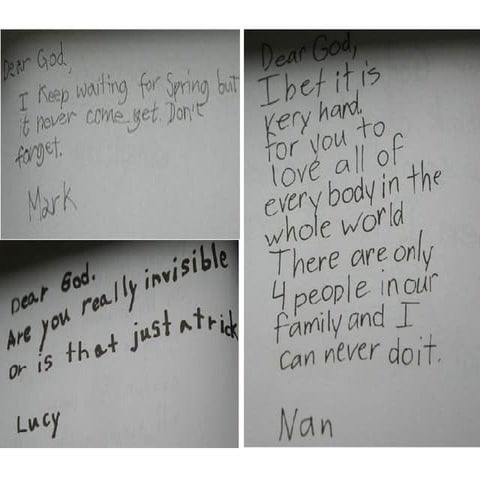 Dear God,
I Keep waiting for Spring but
it never come yet. Don't
forget.
Mark
Dear God.
Are you really invisible
or is that just a trick
Lucy
Dear God,
I bet it is
very hard
for you to
love all of
every body in the
whole world
There are only
4 people in our
family and I
can never do it.
Nan